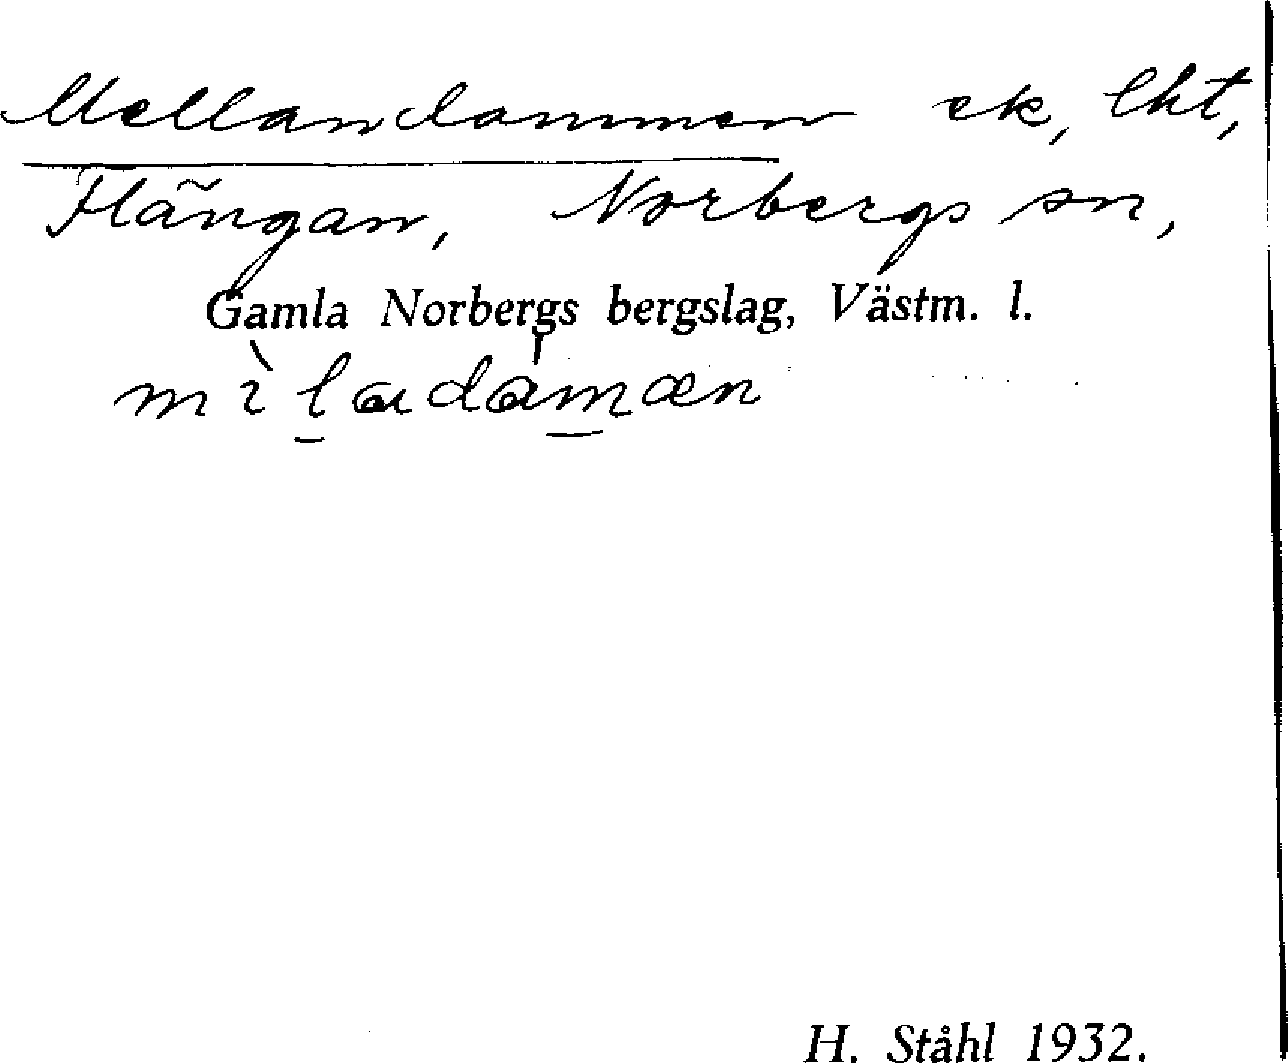 Mellandammen ek, lht,
Flängan, Norbergs sn,
Gamla Norbergs bergslag, Västm. l.
H. Ståhl 1932.